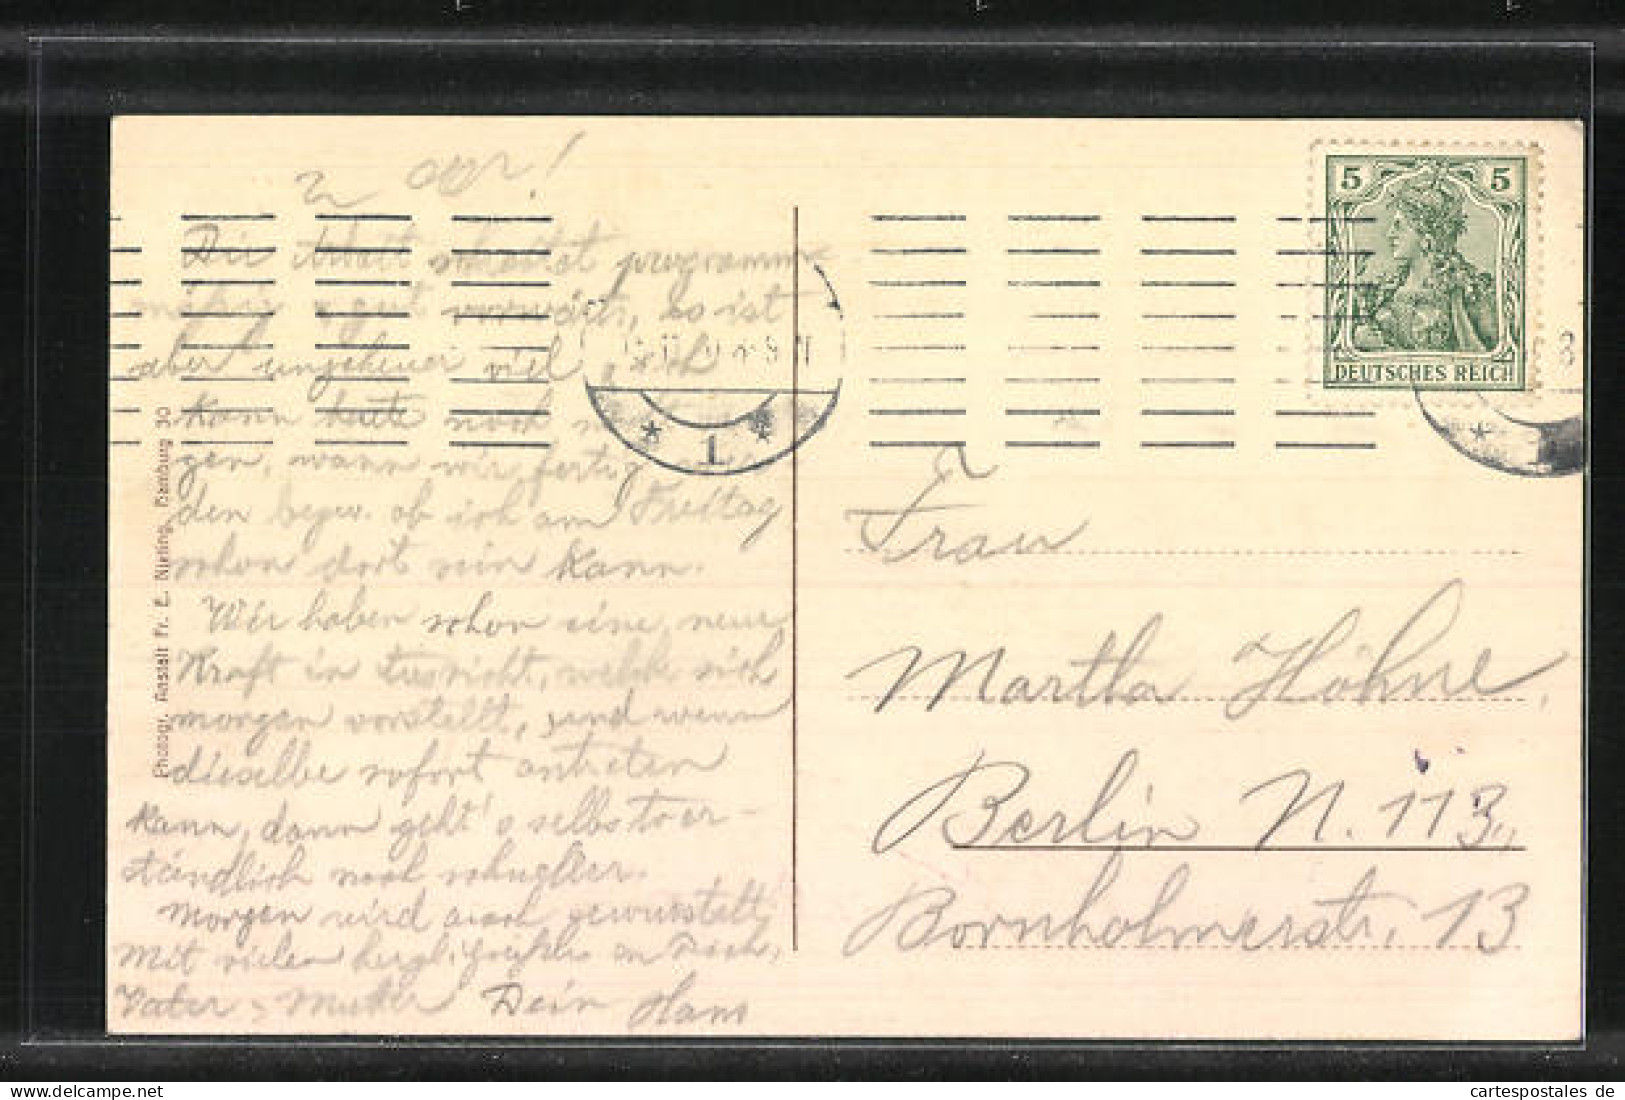 Die Arbeit schreitet programm-
mäßig gut vorwärts, es ist
aber ungeheuer viel, ich
kann heute noch
gen, wann wir fertig
den bezw. ob ich am Freitag
schon dort sein kann.
Wir haben schon eine neue
Kraft in Aussicht, welche sich
morgen vorstellt, und wenn
dieselbe sofort antreten
kann, dann geht's selbstver-
ständlich noch schneller.
Morgen wird auch gewurstelt,
Mit vielen herzl. Grüßen an Dich,
Vater, Mutter Dein Hans
Photogr. Anstalt Fr. E. Nieting, Hamburg 30
1
5 5
DEUTSCHES REICH
Frau
Martha Höhne,
Berlin N. 113,
Bornholmerstr. 13
www.cartespostales.de
cartespostales de